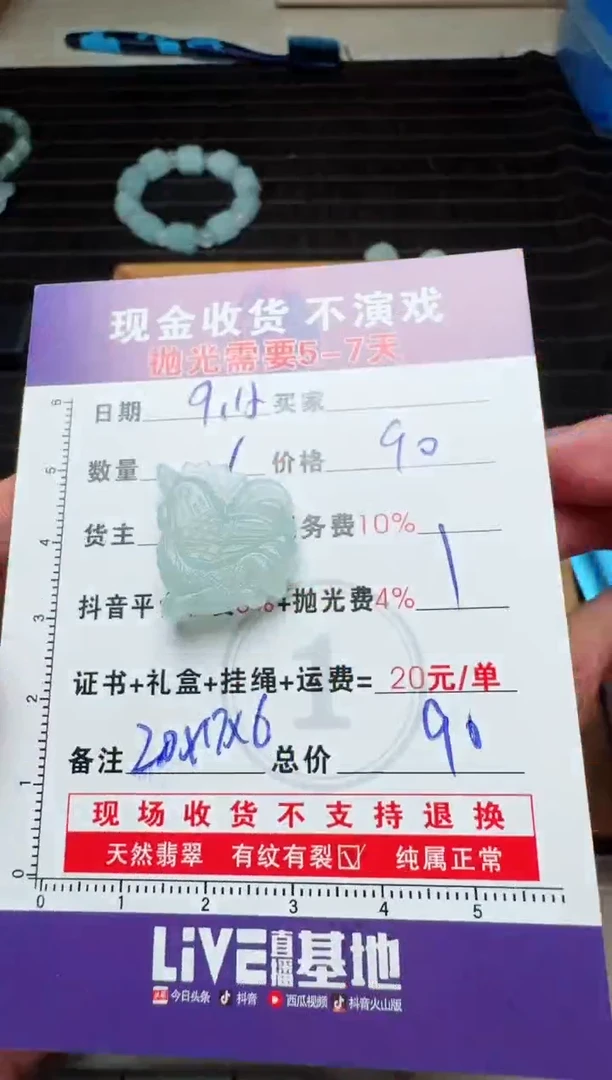 现金收货 不演戏
抛光需要5-7天
日期 9.11 买家
数量 1 价格 90
货主 务费10%
抖音平 +抛光费4%
证书+礼盒+挂绳+运费=20元/单
备注 20x17x6 总价 90
现场收货不支持退换
天然翡翠 有纹有裂☑ 纯属正常
LiVE直播基地
今日头条 抖音 西瓜视频 抖音火山版
6
5
4
3
2
1
0
0 1 2 3 4 5
1